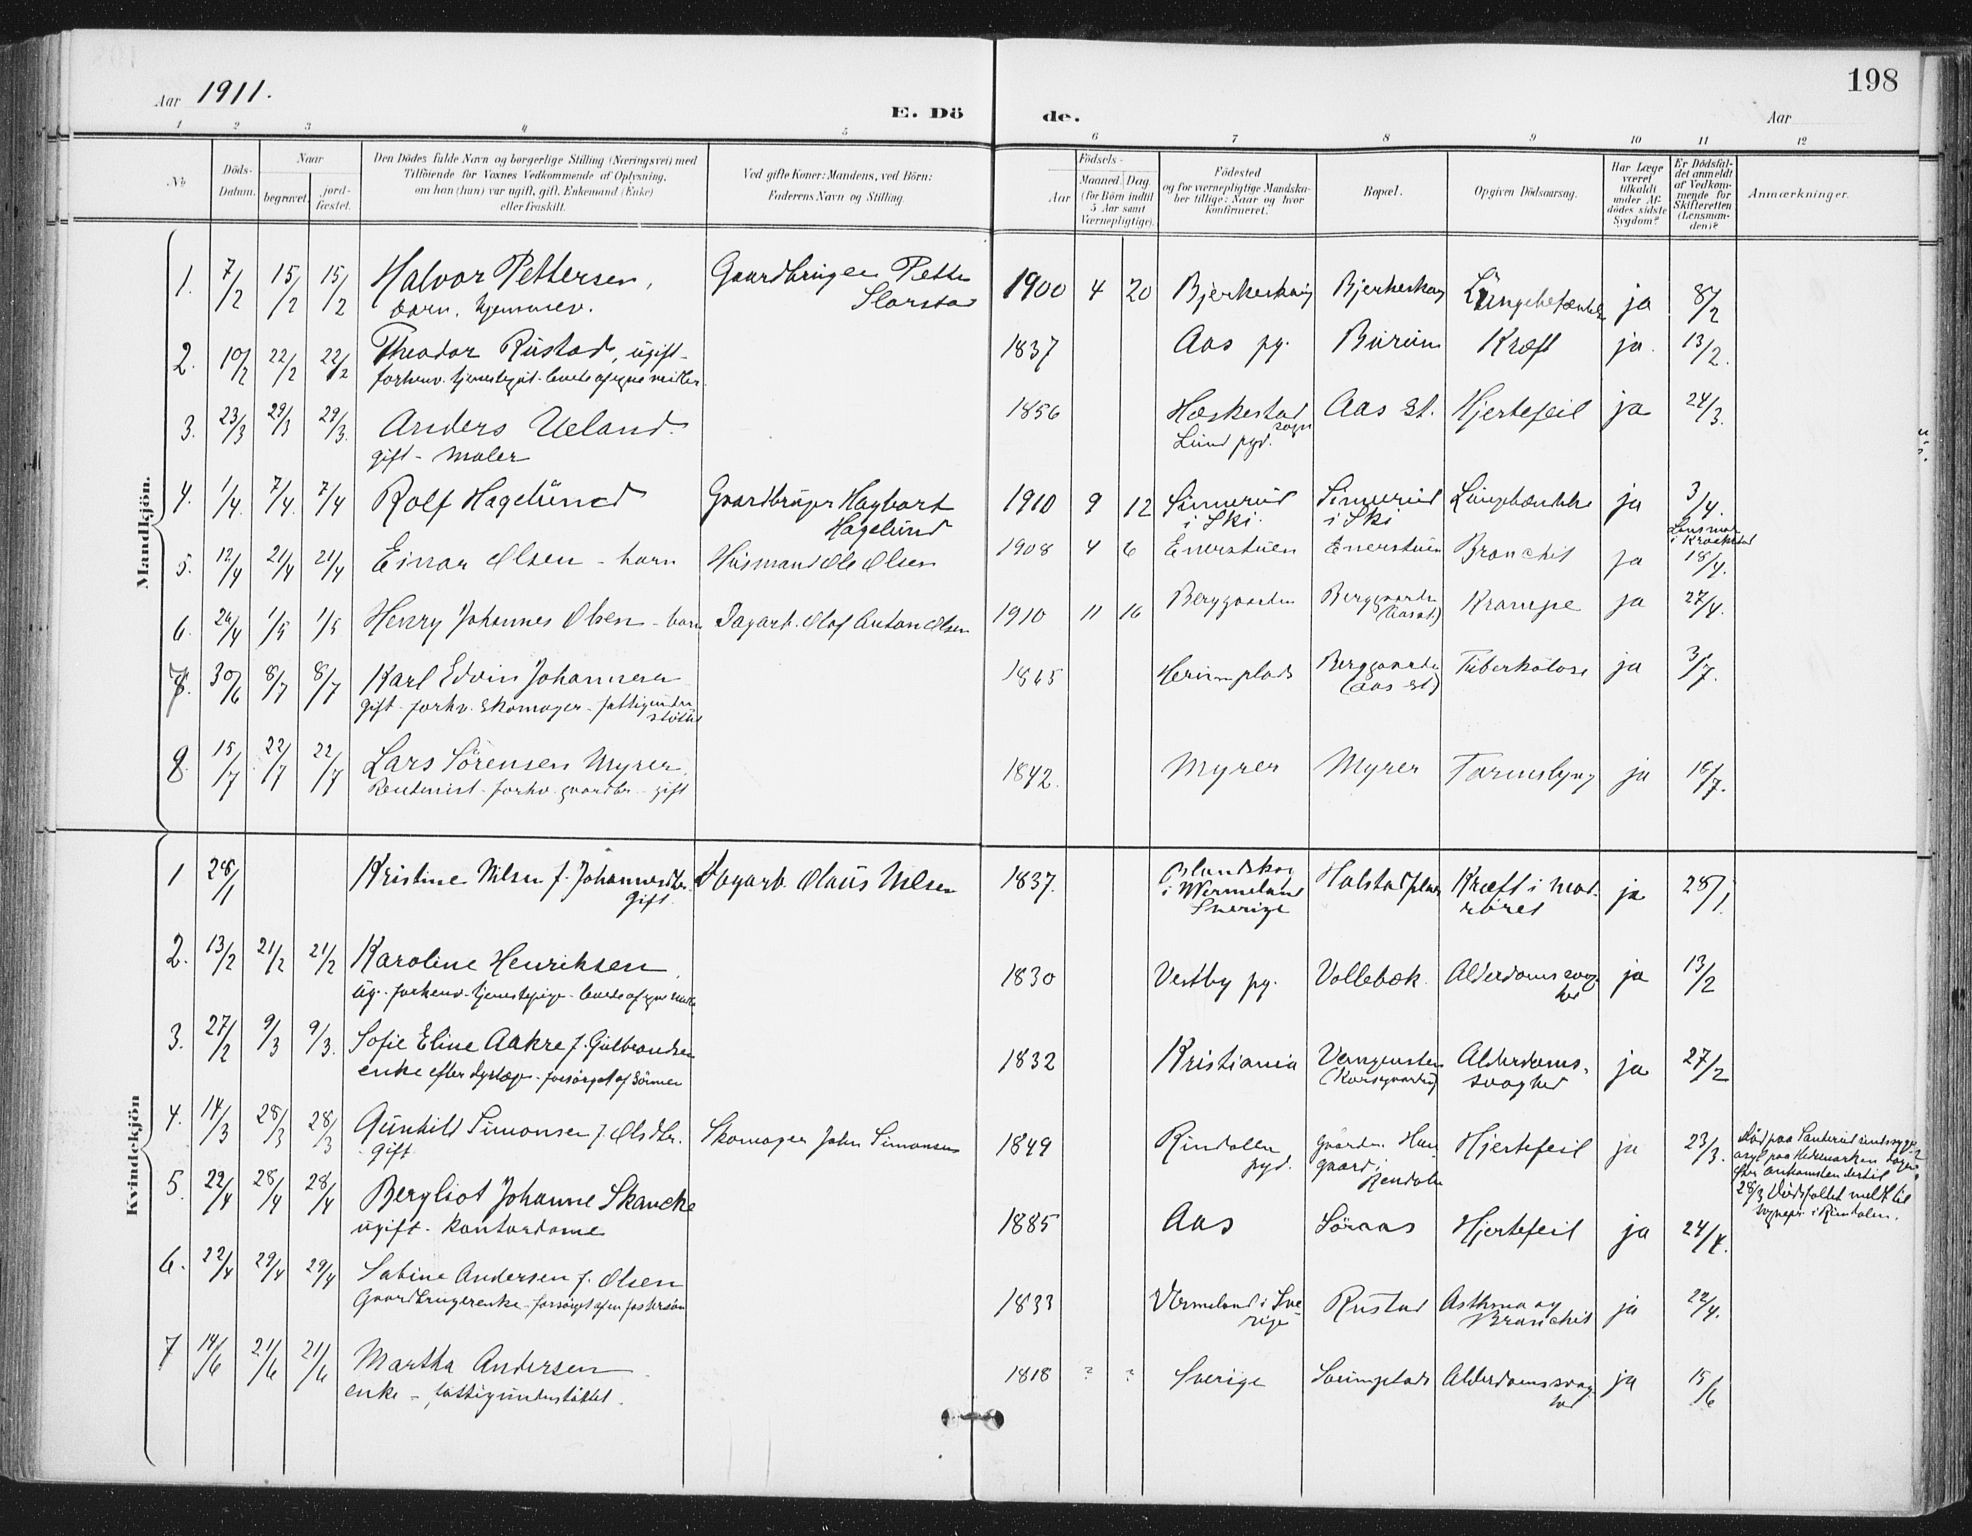 198
Aar 1911.
E. Dö de.
Aar
1 2 3 4 5 6 7 8 9 10 11 12
No
Döds-Datum.
Naar
begravet.
jord-fæstet.
Den Dödes fulde Navn og borgerlige Stilling (Næringsvei) med
Tilföiende for Voxnes Vedkommende af Oplysning,
om han (hun) var ugift, gift, Enkemand (Enke)
eller fraskilt.
Ved gifte Koner: Mandens, ved Börn:
Faderens Navn og Stilling.
Födsels-
Aar
Maaned. Dag.
(for Börn indtil
5 Aar samt
Værnepligtige).
Födested
og for værnepligtige Mandska-
ber tillige: Naar og hvor
konfirmeret.
Bopæl.
Opgiven Dödsaarsag.
Har Læge
været
tilkaldt
under Af-
dödes sidste
Sygdom?
Er Dödsfal-
det anmeldt
af Vedkom-
mende for
Skifteretten
(Lensman-
den)?
Anmærkninger.
Mandkjön.
1. 7/2 15/2 15/2 Halvor Pettersen, Gaardbruger Petter 1900 4 20 Bjerkeskog Bjerkeskog Lungebetændelse ja 8/2
barn, hjemmev.
2. 10/2 22/2 22/2 Theodor Rustad, ugift- 1837 Aas pg. Burum Kræft ja. 13/2.
forhenv. tjenestegut - levede af egne midler.
3. 23/3 29/3 29/3. Anders Ueland. 1856 Heskestad sogn Aas st. Hjertefeil ja 24/3.
gift - maler Lund pgd.
4. 1/4. 7/4. 7/4 Rolf Hagelund Gaardbruger Hagbart 1910 9 12 Simerud Simerud ja 3/4.
Hagelund i Ski. i Ski
5. 12/4 21/4 21/4 Einar Olsen - barn Husmand Ole Olsen 1908 4 6 Enerstuen Enerstuen Bronchit ja 18/4.
6. 26/4 1/5 1/5 Henry Johannes Olsen - barn Dagarb. Olof Anton Olsen 1910 11 16 Berggaarden Berggaarden Krampe ja 27/4.
(Aas st)
7. 30/6 8/7 8/7 Karl Edvin Johannesen 1865 Berggaarden Tuberkulose ja 3/7.
gift - forhv. skomager - fattigunderstöttet (Aas st)
8. 15/7 22/7 22/7 Lars Sörensen Myrer. 1842. Myrer Myrer Tarmslyng ja 16/7.
Rentenist - forhv. gaardbr. - gift
Kvindekjön
1 28/1 Kristine Nilsen f. Johannesdtr. Dagarb. Olaus Nilsen 1837. Halstadplads Kræft i mad- ja 28/1.
gift. i Wermeland röret
Sverige
2. 13/2 21/2 21/2 Karoline Henriksen. 1830 Vestby pg. Vollebæk. Alderdomssvaghed ja 13/2
ug. - forhenv. tjenestepige - levede af egne midler
3. 27/2 9/3 9/3. Sofie Eline Aakre f. Gulbrandsen 1832 Kristiania Alderdoms- ja 27/2
enke efter dyrlæge - forsörget af sönner (Korsegaarden) svaghed
4. 14/3 28/3 28/3 Gunhild Simonsen f. Olsdtr. Skomager John Simonsen 1849 Rindalen Hjertefeil ja 23/3.
gift pgd.
5. 22/4 28/4 28/4 Bergliot Johanne Skancke 1885 Aas Söraas Hjertefeil ja 24/4.
ugift - kontordame
6. 22/4 29/4 29/4 Sabine Andersen f. Olsen 1833 Vermeland i Sve- Rustad Asthma og ja 22/4.
Gaardbrugerenke - forsörget af en fostersön rige Bronchit
7 14/6 21/6 21/6 Martha Andersen. 1818 ? ? Sverige Alderdomssvag- ja 15/6
enke - fattigunderstöttet. hed